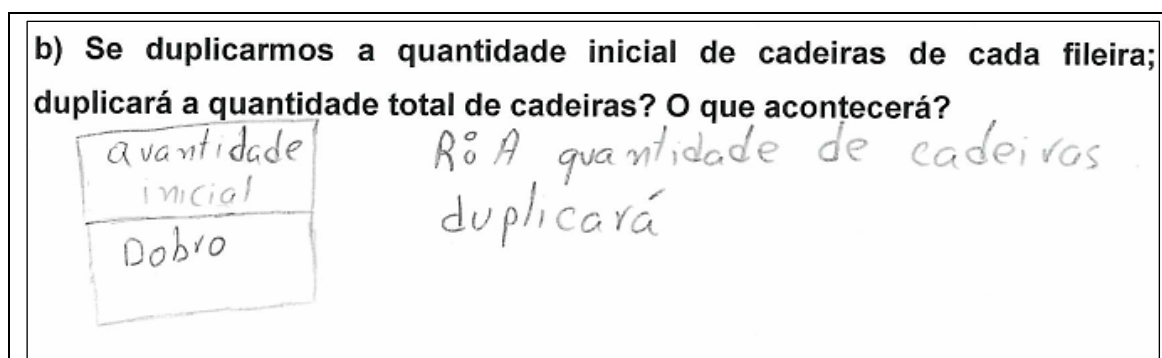 b) Se duplicarmos a quantidade inicial de cadeiras de cada fileira;
duplicará a quantidade total de cadeiras? O que acontecerá?
quantidade
inicial
Dobro
R: A quantidade de cadeiras
duplicará